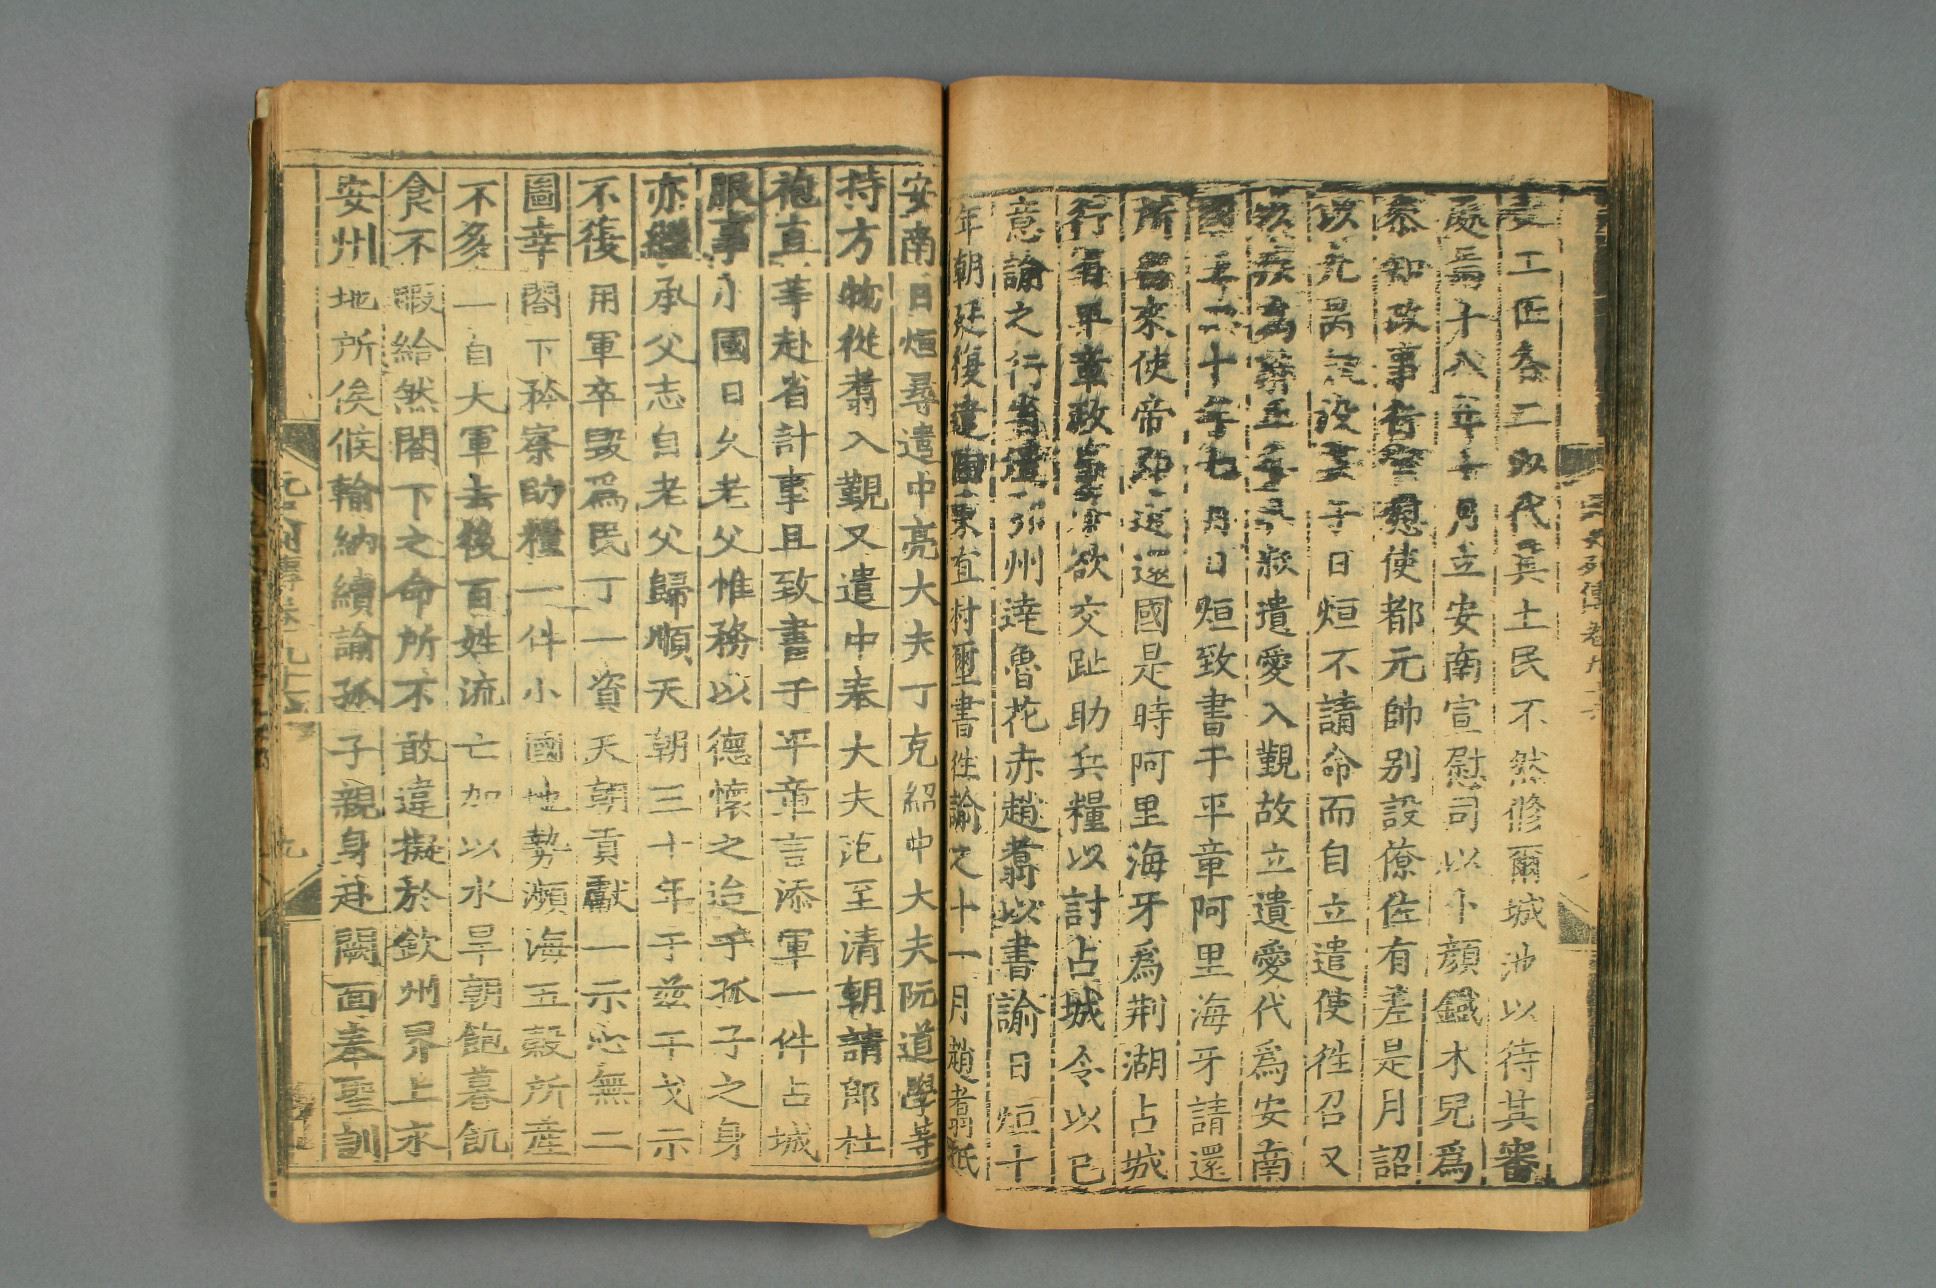 文工匠各二以代其土民不然修爾城池以待其審
處焉十八年十月立安南宣慰司以卜顏鐵木兒爲
參知政事行宣慰使都元帥別設僚佐有差是月詔
以光昺既歿其子日烜不請命而自立遣使往召又
以疾爲辭止令其叔遺愛入覲故立遺愛代爲安南
國王二十年七月日烜致書于平章阿里海牙請還
所留來使帝即遣還國是時阿里海牙爲荊湖占城
行省平章政事帝欲交趾助兵糧以討占城令以己
意諭之行省遣鄂州達魯花赤趙翥以書諭日烜十
年朝廷復遣陶秉直持璽書徃諭之十一月趙翥抵
安南日烜尋遣中亮大夫丁克紹中大夫阮道學等
持方物從翥入覲又遣中奉大夫范至清朝請郎杜
袍直等赴省計事且致書于平章言添軍一件占城
服事小國日久老父惟務以德懷之迨乎孤子之身
亦繼承父志自老父歸順天朝三十年于兹干戈示
不復用軍卒毀爲民丁一資天朝貢獻一示心無二
圖幸閣下矜察助糧一件小國地勢瀕海五穀所產
不多一自大軍去後百姓流亡加以水旱朝飽暮飢
食不暇給然閣下之命所不敢違擬於欽州界上永
安州地所俟候輸納續諭孤子親身赴闕面奉聖訓
元史列傳卷九十六
九